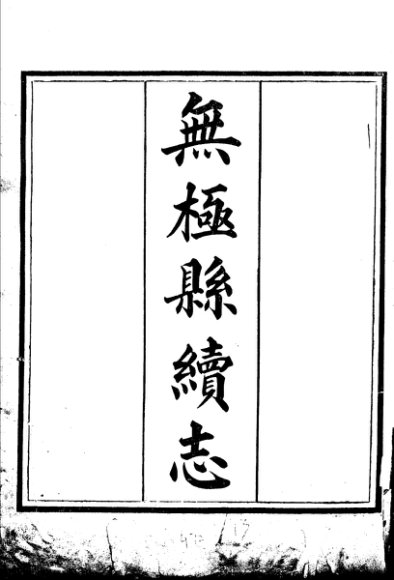 無極縣續志